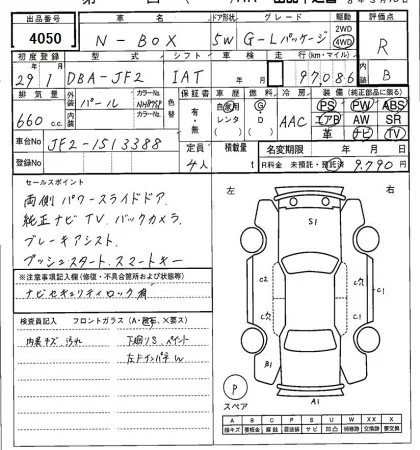 出品番号 車名 ドア形状 グレード 駆動 評価点
4050 N-BOX 5W G-Lパッケージ 2WD 4WD R
初度登録 型式 シフト 車検 走行(km・マイル) 内装
29 1 DBA-JF2 IAT 97,086 B
排気量 外装 カラーNo. 色替 保証書 車歴 燃料 冷房 装備 (純正部品に限る)
660 c.c. パール NH875P 有・無 自家用 G AAC PS PW ABS
内装 カラーNo. レンタ D エアB AW SR
革 ナビ TV
車台No JF2-1513388 定員 積載量 名変期限 年 月 日
登録No 4人 t R料金 未預託・預託済 9,790
セールスポイント
両側パワースライドドア.
純正ナビ TV. バックカメラ.
ブレーキアシスト.
プッシュスタート. スマートキー
※注意事項記入欄(修復・不具合箇所および状態等)
ナビセキュリティロック有
検査員記入 フロントガラス(A・飛石、X要ス)
内装キズ 汚れ 下廻りS. ペイント
左Fインパネ W
左 右
S1
C2 C穴 C穴 C1
B1
P スペア
A1
A B C P S U W X XX